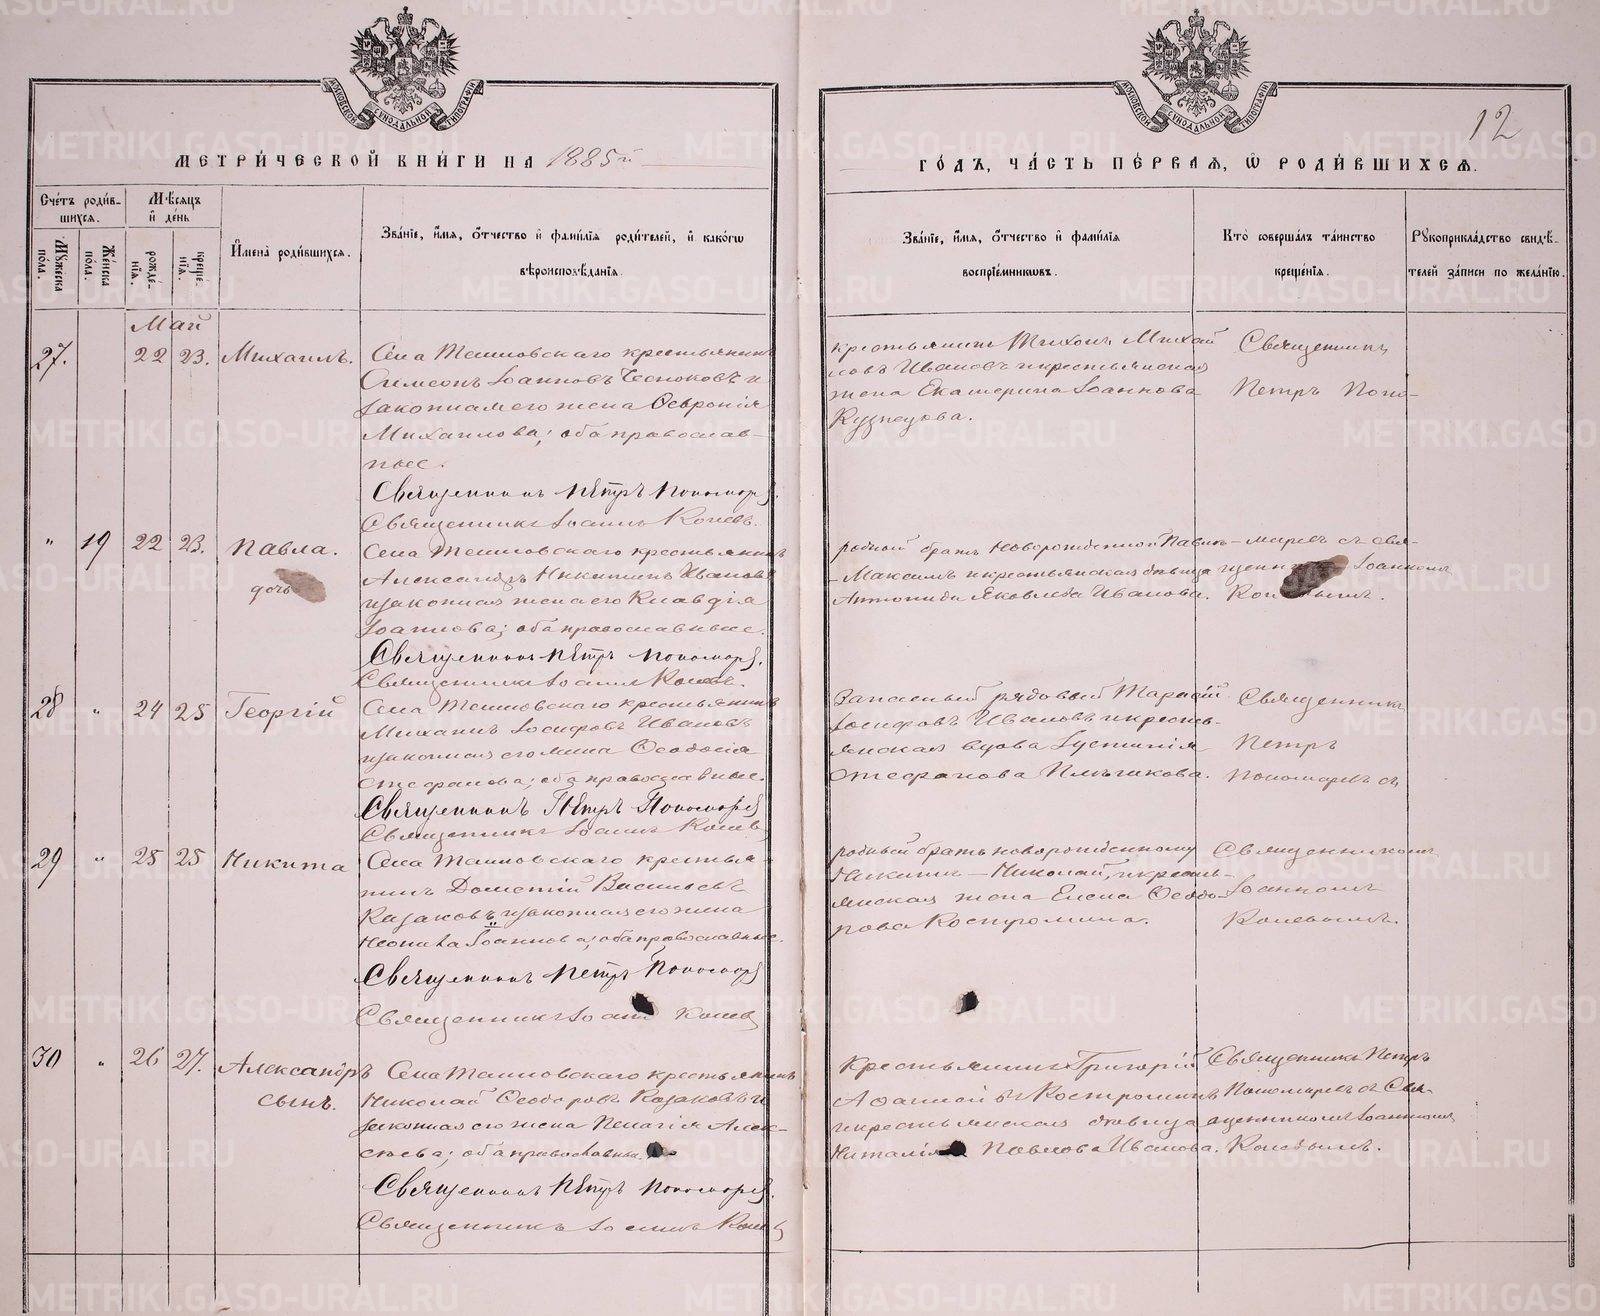 12
МЕТРИЧЕСКОЙ КНИГИ НА 1885й
ГОДЪ, ЧАСТЬ ПЕРВАЯ, Ѡ РОДИВШИХСЯ.
Счетъ родив-
шихся.
Мужеска пола.
Женска пола.
Мѣсяцъ
и день
рожде-
нія.
креще-
нія.
Имена родившихся.
Званіе, имя, отчество и фамилія родителей, и какогѡ
вѣроисповѣданія.
Званіе, имя, отчество и фамилія
воспріемникѡвъ.
Кто совершалъ таинство
крещенія.
Рукоприкладство свидѣ-
телей записи по желанію.
Май
27.
22 23.
Михаилъ.
крестьянинъ
Симеонъ Іоанновъ Чесноковъ и
законная его жена Ѳевронія
Михаилова; оба православ-
ные.
Священникъ Петръ Пономаревъ
Священникъ Іоаннъ Коневъ.
крестьянинъ Тихонъ Михай
ловъ Ивановъ и крестьянская
жена Екатерина Іоаннова
Кузнецова.
Священникъ
Петръ Поно-
" 19 22 23.
Павла.
дочь
крестьянинъ
Александръ Никитинъ Ивановъ
и законная жена его Клавдія
Іоаннова; оба православные.
Священникъ Петръ Пономарев.
Священникъ Іоаннъ Коневъ.
родной братъ новорожденной Павлы
- Максимъ и крестьянская дѣвица
Антонида Яковлева Иванова.
- маревъ съ свя-
Іоанномъ
28 " 24 25
Георгій
крестьянинъ
Михаилъ Іосифовъ Ивановъ
и законная его жена Ѳеодосія
Стефанова; оба православные.
Священникъ Петръ Пономарев
Священникъ Іоаннъ Коневъ
Запасный рядовый
Іосифовъ Ивановъ и кресть-
янская вдова Іустинія
Стефанова
Священникъ
Петръ
Пономаревъ съ
29 " 25 25
Никита
крестья-
нинъ Дометій Васильевъ
Казаковъ и законная его жена
Неонила Іоаннова; оба православные.
Священникъ Петръ Пономарев
Священникъ Іоаннъ Коневъ
родный братъ новорожденному
Никитѣ - Николай, и кресть-
янская жена Елена Ѳеодо-
рова Костромина.
Священникомъ
Іоанномъ
Коневымъ.
30 " 26 27.
Александръ
сынъ.
крестьянинъ
Николай Ѳеодоровъ Казаковъ и
законная его жена Пелагія Алек-
сѣева; оба православные.
Священникъ Петръ Пономарев.
Священникъ Іоаннъ Коневъ
Крестьянинъ Григорій
Костроминъ
и крестьянская дѣвица
Наталія Павлова Иванова.
Священникъ Петръ
Пономаревъ съ Свя-
щенникомъ Іоанномъ
Коневымъ.
METRIKI.GASO-URAL.RU